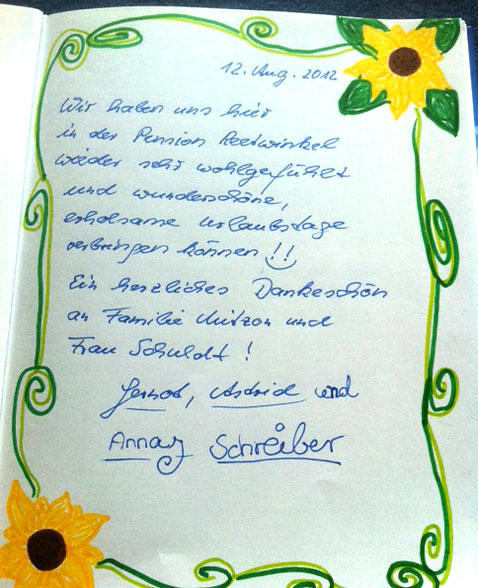 12. Aug. 2012
Wir haben uns hier
in der Pension Reetwinkel
wieder sehr wohlgefühlt
und wunderschöne,
erholsame Urlaubstage
verbringen können!!
Ein herzliches Dankeschön
an Familie und
Frau Schuldt!
Gernot, Astrid und
Annay Schreiber